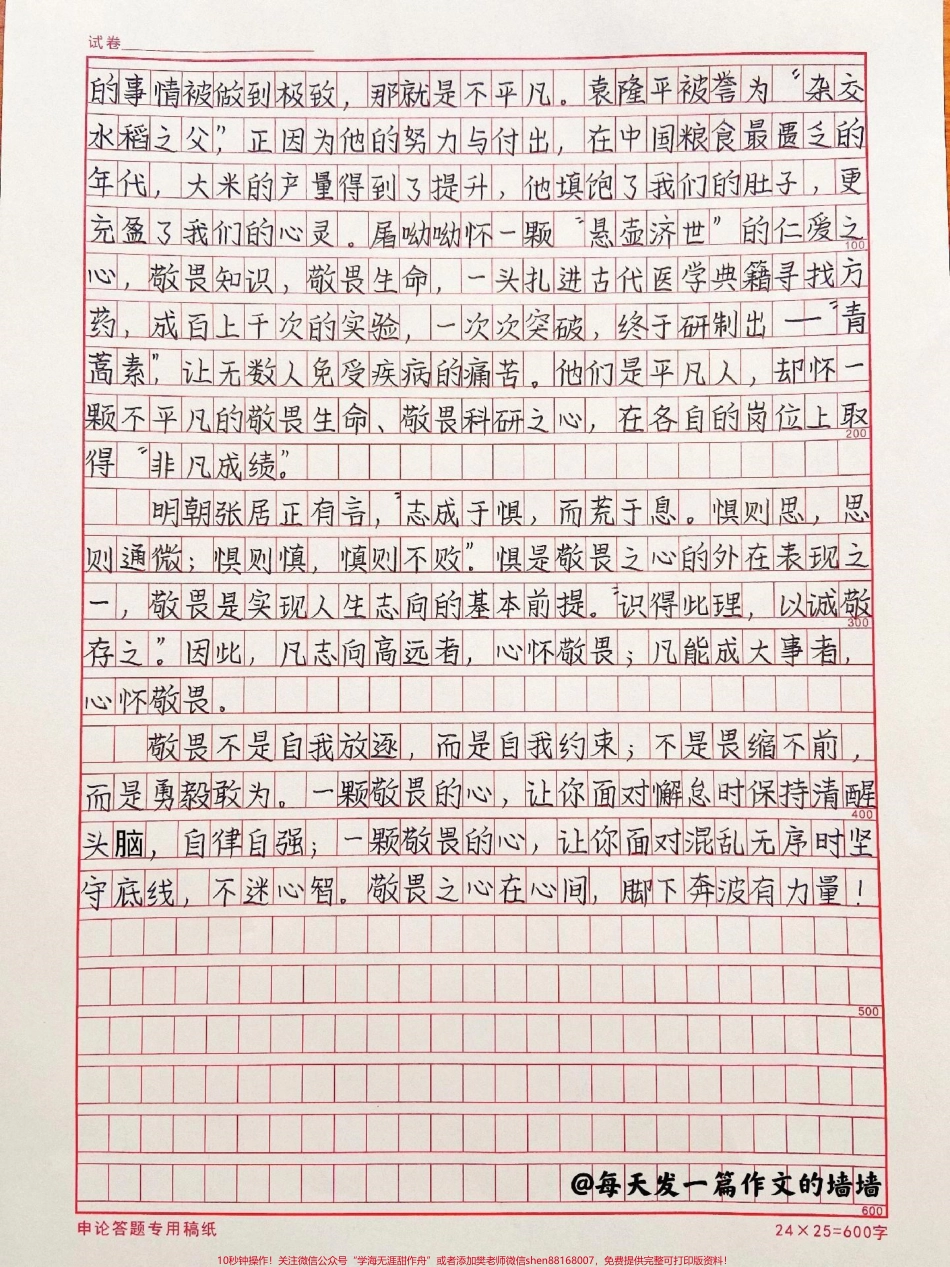 试卷
的事情被做到极致，那就是不平凡。袁隆平被誉为“杂交
水稻之父”，正因为他的努力与付出，在中国粮食最匮乏的
年代，大米的产量得到了提升，他填饱了我们的肚子，更
充盈了我们的心灵。屠呦呦怀一颗“悬壶济世”的仁爱之
100
心，敬畏知识，敬畏生命，一头扎进古代医学典籍寻找方
药，成百上千次的实验，一次次突破，终于研制出——“青
蒿素”，让无数人免受疾病的痛苦。他们是平凡人，却怀一
颗不平凡的敬畏生命、敬畏科研之心，在各自的岗位上取
200
得“非凡成绩”。
明朝张居正有言，“志成于惧，而荒于息。惧则思，思
则通微；惧则慎，慎则不败”。惧是敬畏之心的外在表现之
一，敬畏是实现人生志向的基本前提。“识得此理，以诚敬
300
存之”。因此，凡志向高远者，心怀敬畏；凡能成大事者，
心怀敬畏。
敬畏不是自我放逐，而是自我约束；不是畏缩不前，
而是勇毅敢为。一颗敬畏的心，让你面对懈怠时保持清醒
400
头脑，自律自强；一颗敬畏的心，让你面对混乱无序时坚
守底线，不迷心智。敬畏之心在心间，脚下奔波有力量！
500
@每天发一篇作文的墙墙
600
申论答题专用稿纸
24×25=600字
10秒钟操作！关注微信公众号“学海无涯甜作舟”或者添加樊老师微信shen88168007，免费提供完整可打印版资料！